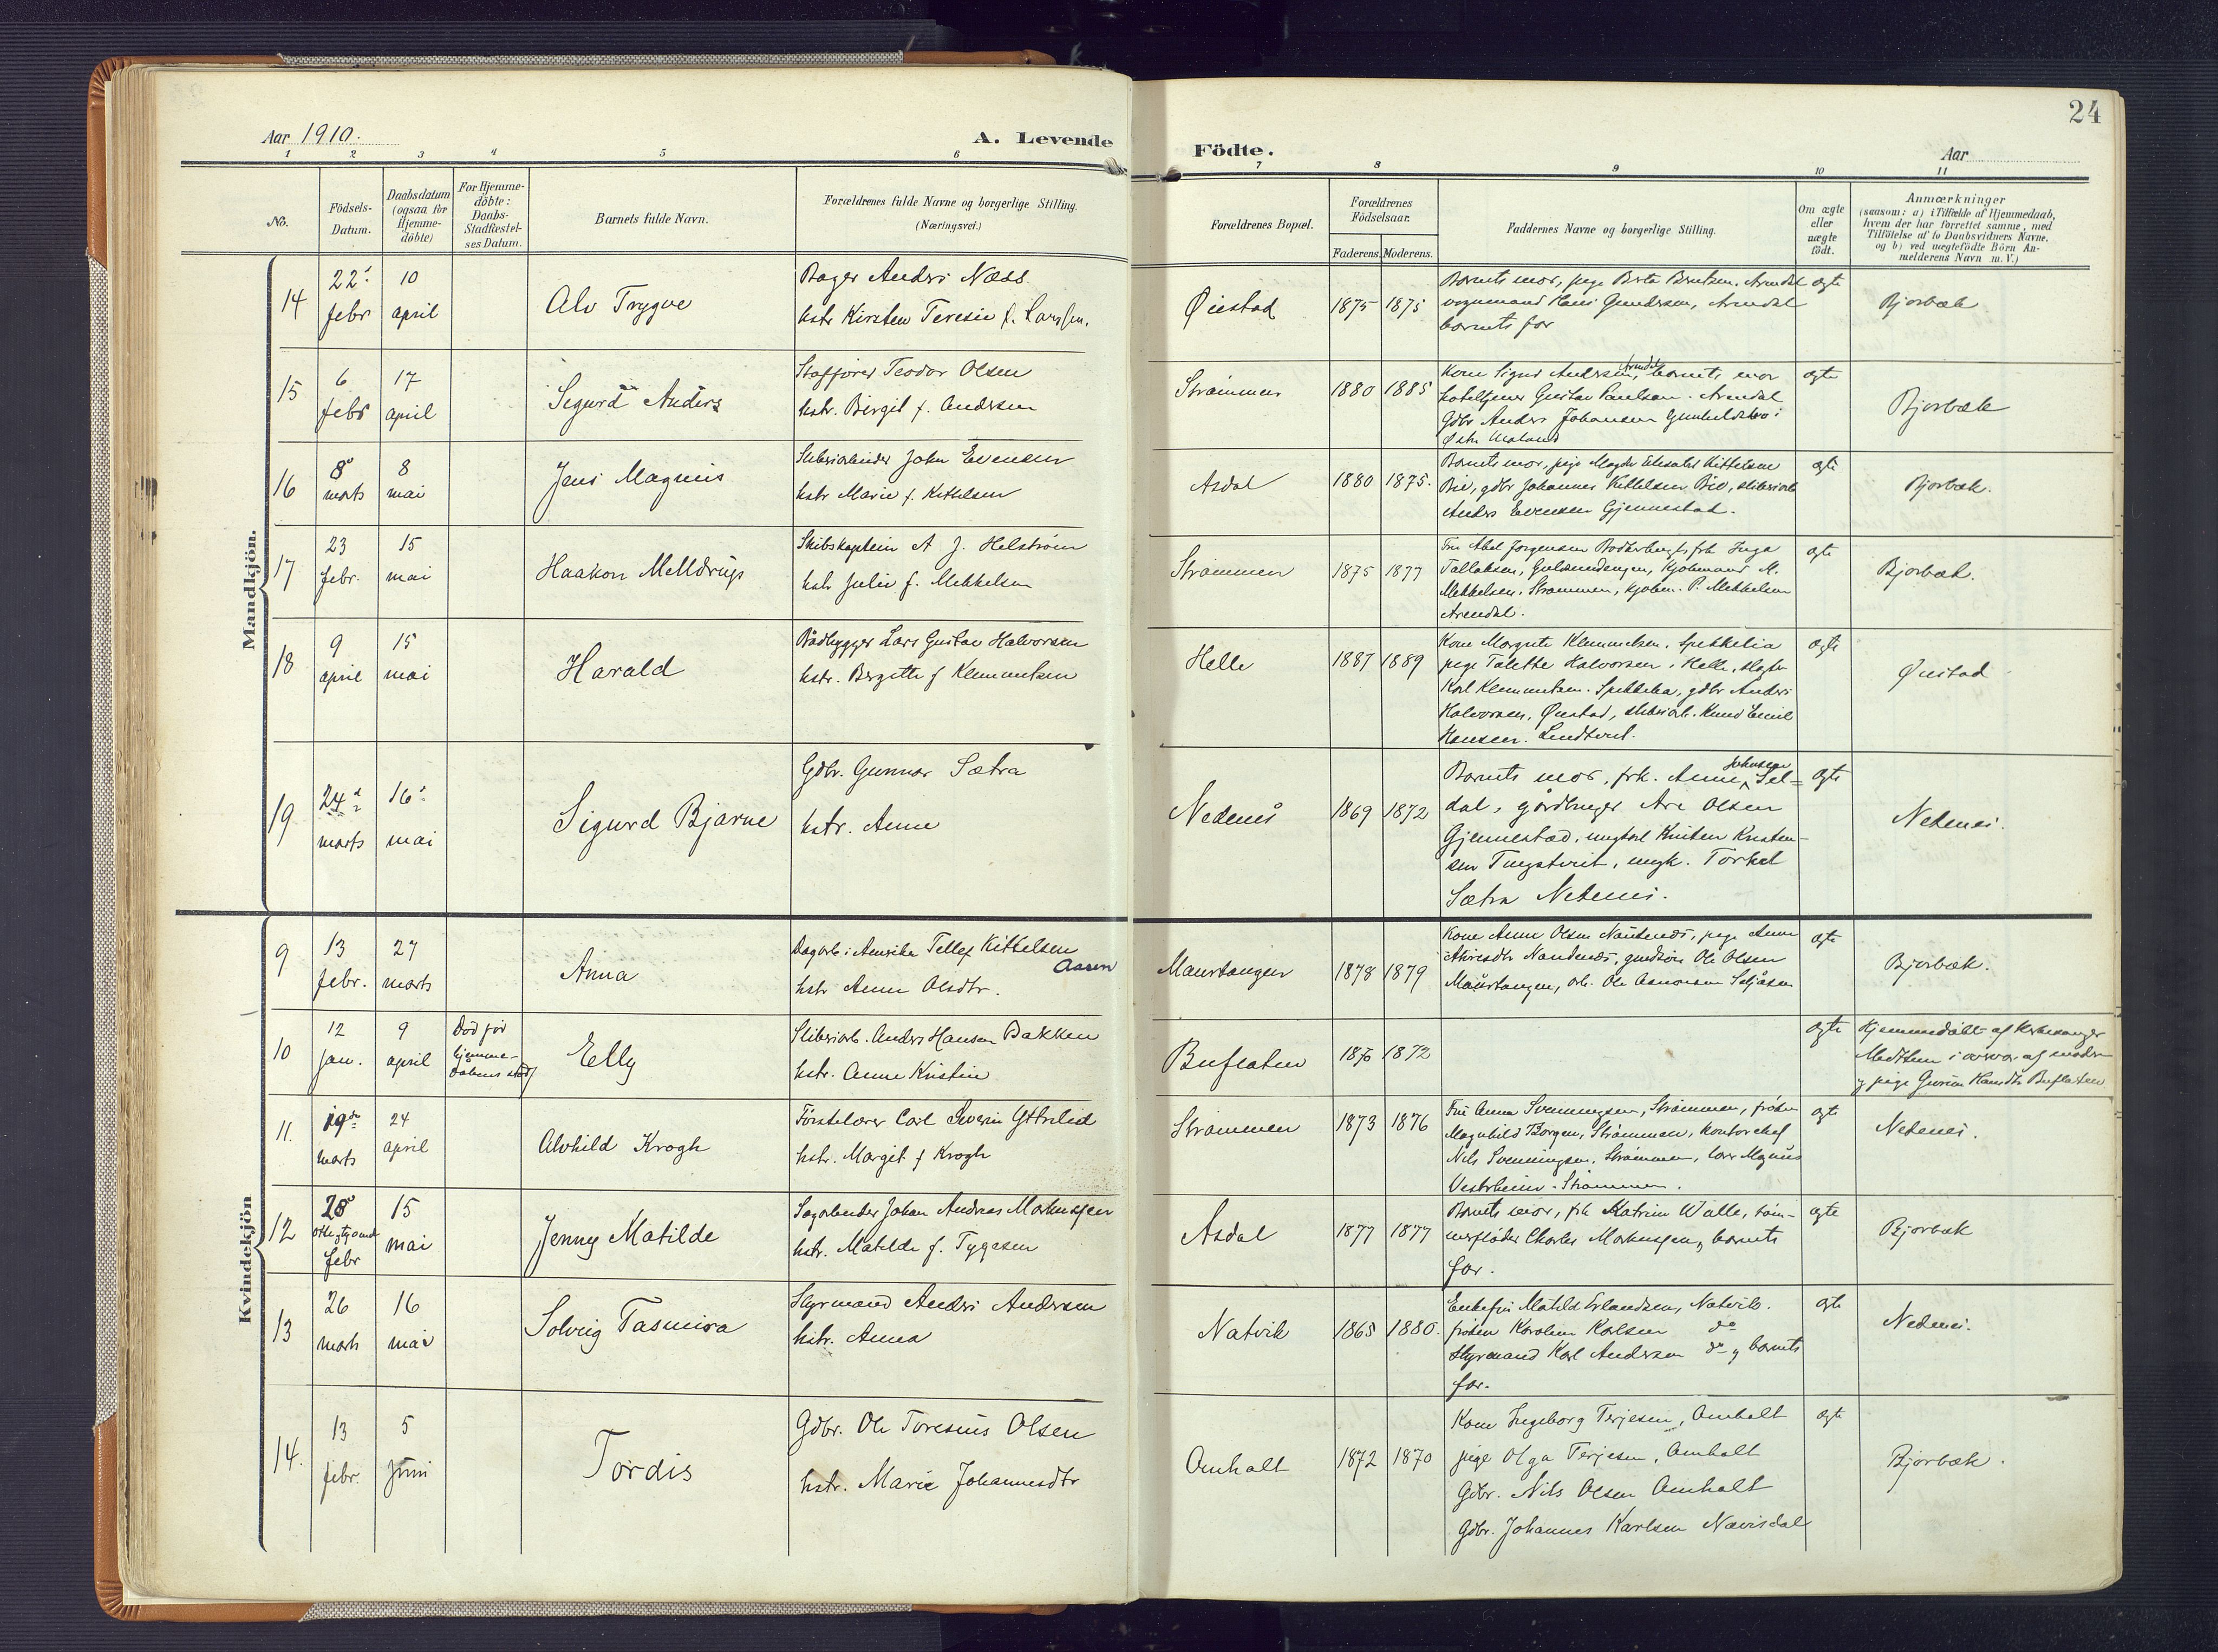 24
Aar 1910.
A. Levende
Födte.
Aar
1 2 3 4 5 6 7 8 9 10 11
No.
Födsels-
Datum.
Daabsdatum
(ogsaa for
Hjemme-
döbte)
For Hjemme-
döbte:
Daabs-
Stadfæstel-
ses Datum.
Barnets fulde Navn.
Forældrenes fulde Navne og borgerlige Stilling.
(Næringsvei.)
Forældrenes Bopæl.
Forældrenes
Födselsaar.
Faderens. Moderens.
Faddernes Navne og borgerlige Stilling.
Om ægte
eller
uægte
födt.
Anmærkninger
(saasom: a) i Tilfælde af Hjemmedaab,
hvem der har forrettet samme, med
Tilföielse af to Daabsvidners Navne,
og b) ved uægtefödte Börn An-
melderens Navn m. V.)
Mandkjön.
14
22
febr
10
april
Alv Trygve
Bager Anders Næss
hstr Kirsten Teresie f. Larssen.
Øiestad
1875 1875
Barnets mor, pige Berta Berntsen, Arendal
vognmand Hans Gundersen, Arendal
barnets far
ægte
Bjorbæk
15
6
febr
17
april
Sigurd Anders
Teodor Olsen
hstr. Birgit f. Andersen
Strømmen
1880 1885
Kone Signe Andersen, Arendal, barnets mor
Gustav Paulsen. Arendal
Gdbr Anders Johansen i
Østre Moland
ægte
Bjorbæk
16
8
marts
8
mai
Jens Magnus
Sliberiarbeider John Evensen
hstr Marie f. Kittelsen
Asdal
1880 1875.
Barnets mor, pige Magda Kittelsen
Bie, gdbr Johannes Kittelsen Bie, sliberiarb
Anders Evensen Gjennestad.
ægte
Bjorbæk.
17
23
febr.
15
mai
Haakon Melldrup
Skibskaptein A J. Helstrøm
hstr Julie f. Mekkelsen
Strømmen
1875 1877
Fru Abel Jorgensen frk Inga
Tallaksen, Kjobmand M.
Mekkelsen, Strømmen, kjobm. P. Mekkelsen
Arendal.
ægte
Bjorbæk.
18
9
april
15
mai
Harald
Baadbygger Lars Gustav Halvorsen
hstr. Bergitte f Klemmetsen
Helle
1887 1889
Kone Margrete Klemmetsen, Spekkelia
pige Talette Halvorsen, Helle,
Karl Klemmetsen. Spekkelia, gdbr Anders
Halvorsen, Øiestad, sliberiarb. Knud Emil
Hansen.
ægte
Øiestad
19
24
marts
16
mai
Sigurd Bjarne
Gdbr. Gunnar Sætra
hstr. Anne
Nedenes
1869 1872
Barnets mor, frk. Anne Johnsen Sel-
dal, gårdbruger Are Olsen
Gjennestad, ungkarl Kristen Kristen-
sen, ungk. Torkel
Sætra Nedenes.
ægte
Nedenes.
Kvindekjön
9
13
febr.
27
marts
Anna
Dagarb. i Amerika Tellef Kittelsen
Aasen
hstr Anne Olsdtr.
Maurtangen
1878 1879
Kone Anne Olsen Nautenes, pige Anne
Nautenes, Ole Olsen
Maurtangen, arb. Ole Aanonsen
ægte
Bjorbæk.
10
12
jan.
9
april
Død før
hjemme-
daabens stadf
Elly
Sliberiarb. Anders Hansen Bakken
hstr. Anne Kristine
Buflaten
1872
ægte
Hjemmedøbt af Kirkesanger
Madsen i nærvær af moderen
og pige Hansdtr Buflaten
11.
19de
marts
24
april
Alvhild Krogh
Førstelærer Carl Severin Ytterlid
hstr. Margit f Krogh
Strømmen
1873 1876
Fru Anna Svenningsen, Strømmen, frøken
Magnhild Borgen, Strømmen, kontorchef
Nils Svenningsen, Strømmen, lærer Magnus
Vestrheim. Strømmen.
ægte
Nedenes.
12
28
otte og tyvende
febr
15
mai
Jenny Matilde
Sagarbeider Johan Andreas Markussen
hstr. Matilde f. Tygesen
Asdal
1877 1877
Barnets mor, frk Katrine Walle, tøm-
merfløder Charles Markussen, barnets
far.
ægte
Bjorbæk
13
26
marts
16
mai
Solveig Tasmira
Styrmand Anders Andersen
hstr. Anna
Natvik
1865 1880.
Enkefru Matild Erlandsen, Natvik.
frøken Karoline Karlsen do
Styrmand Karl Andersen do og barnets
far.
ægte
Nedenes.
14.
13
febr.
5
juni
Tordis
Gdbr. Ole Toresius Olsen
hstr. Marie Johannesdtr
Omholt
1872 1870
Kone Ingeborg Terjesen, Omholt
pige Olga Terjesen, Omholt
Gdbr. Nils Olsen Omholt
Gdbr. Johannes Karlsen Nævisdal
ægte
Bjorbæk.